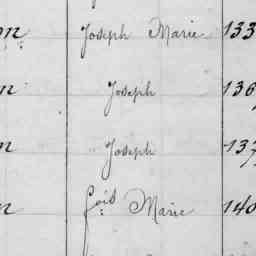 on Joseph Marie 133
n Joseph 136
n Joseph 137
n fois Marie 140